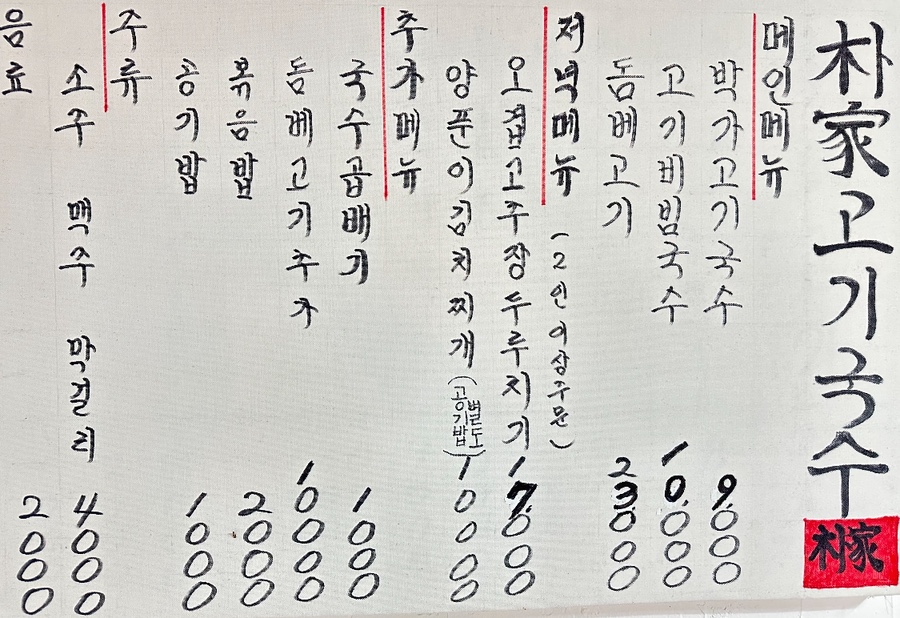 朴家고기국수
朴家
메인메뉴
박가고기국수 9.000
고기비빔국수 10.000
돔베고기 23.000
저녁메뉴 (2인이상주문)
오겹고추장두루치기 17.000
양푼이김치찌개 (공기밥 별도) 10000
추가메뉴
국수곱빼기 1000
돔베고기추가 10000
볶음밥 2000
공기밥 1000
주류
소주 맥주 막걸리 4000
음료 2000